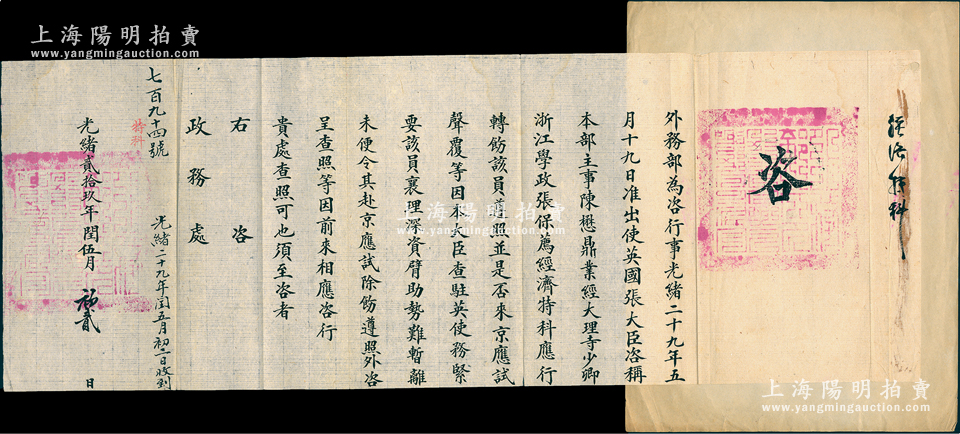 上海陽明拍賣
www.yangmingauction.com
經濟特科
咨
外務部為咨行事光緒二十九年五
月十九日准出使英國張大臣咨稱
本部主事陳懋鼎業經大理寺少卿
浙江學政張保薦經濟特科應行
轉飭該員遵照並是否來京應試
聲覆等因本大臣查駐英使務緊
要該員襄理深資臂助勢難暫離
未便令其赴京應試除飭遵照外咨
呈查照等因前來相應咨行
貴處查照可也須至咨者
右咨
政務處
光緒二十九年閏五月初二日收到
七百九十四號
特科
光緒貳拾玖年閏伍月初貳日
上海陽明拍賣
www.yangmingauction.com